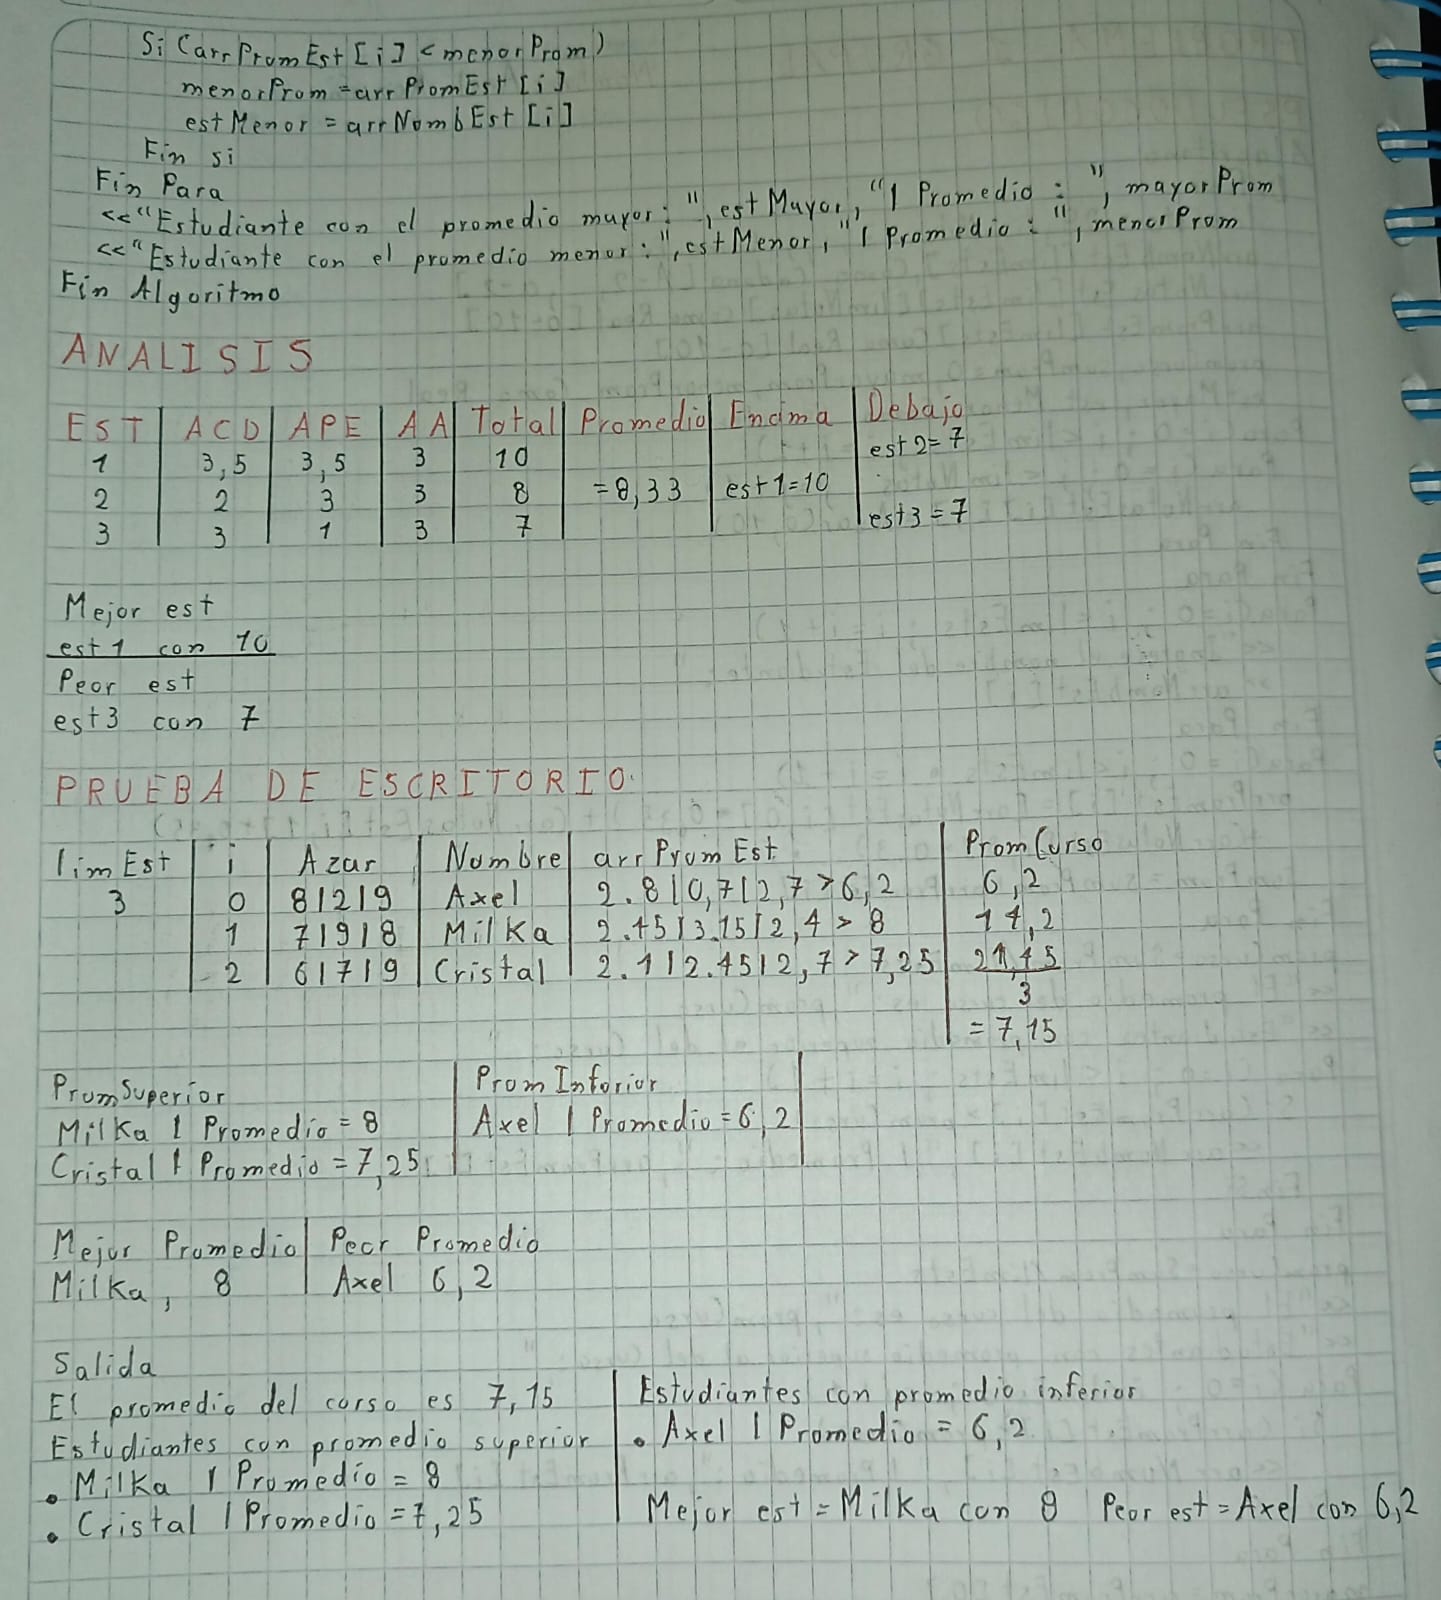 Si (arrPromEst [i] < menorProm)
menorProm = arrPromEst [i]
estMenor = arrNombEst [i]
Fin si
Fin Para
<<"Estudiante con el promedio mayor: ", estMayor, "| Promedio : ", mayorProm
<<"Estudiante con el promedio menor: ", estMenor, "| Promedio : ", menorProm
Fin Algoritmo
ANALISIS
EST | ACD | APE | AA | Total | Promedio | Encima | Debajo
1 | 3,5 | 3,5 | 3 | 10 | | | est2=7
2 | 2 | 3 | 3 | 8 | =8,33 | est1=10 |
3 | 3 | 1 | 3 | 7 | | | est3=7
Mejor est
est1 con 10
Peor est
est3 con 7
PRUEBA DE ESCRITORIO
limEst | i | Azar | Nombre | arrPromEst | PromCurso
3 | 0 | 8|2|9 | Axel | 2.8|0,7|2,7 > 6,2 | 6,2
1 | 7|9|8 | Milka | 2.45|3.15|2,4 > 8 | 14,2
2 | 6|7|9 | Cristal | 2.1|2.45|2,7 > 7,25 | 21,45
3
= 7,15
PromSuperior | PromInferior
Milka | Promedio = 8 | Axel | Promedio = 6,2
Cristal | Promedio = 7,25
Mejor Promedio | Peor Promedio
Milka, 8 | Axel 6,2
Salida
El promedio del curso es 7,15
Estudiantes con promedio superior
• Milka | Promedio = 8
• Cristal | Promedio = 7,25
Estudiantes con promedio inferior
• Axel | Promedio = 6,2
Mejor est = Milka con 8 Peor est = Axel con 6,2